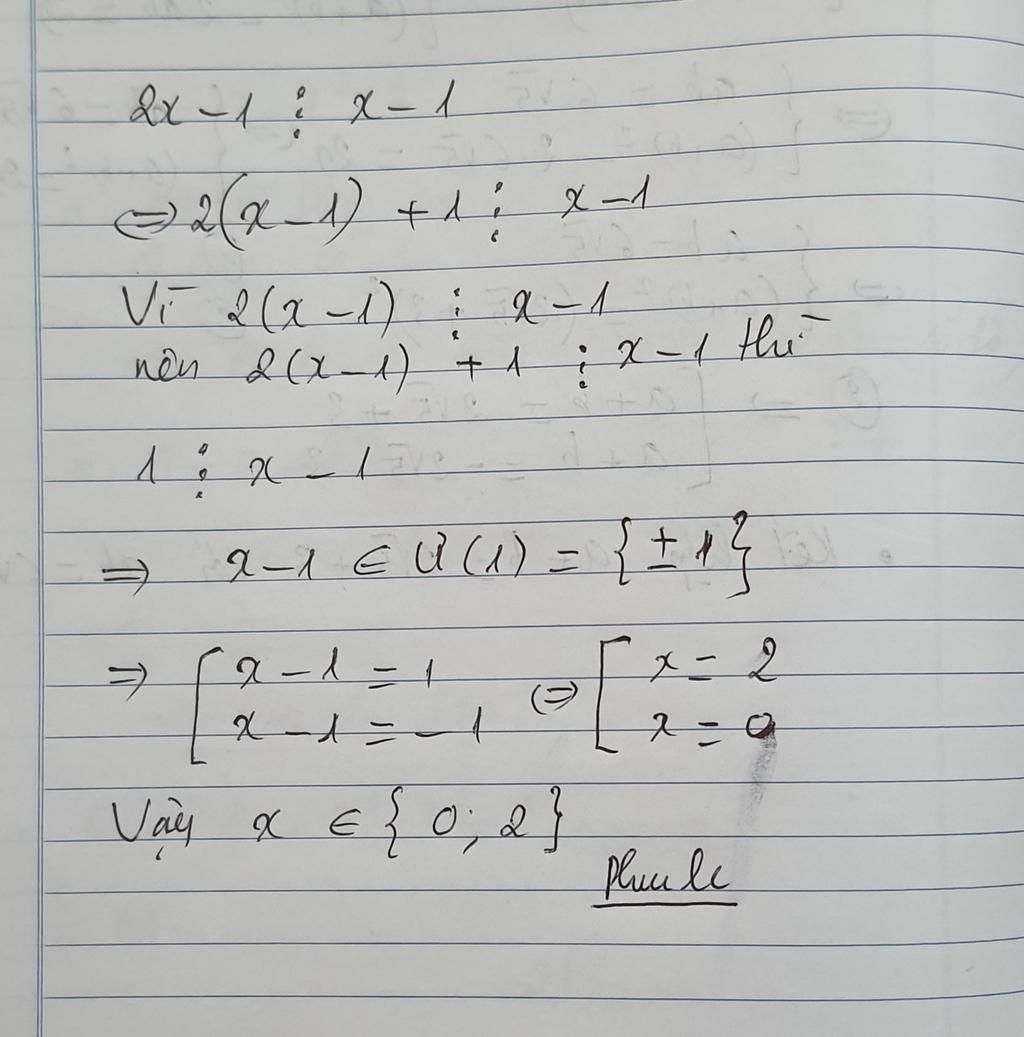 2x - 1 ⋮ x - 1
⇔ 2(x - 1) + 1 ⋮ x - 1
Vì 2(x - 1) ⋮ x - 1
nên 2(x - 1) + 1 ⋮ x - 1 thì
1 ⋮ x - 1
⇒ x - 1 ∈ Ư(1) = {± 1}
⇒ [ x - 1 = 1 ⇔ [ x = 2
x - 1 = - 1 x = 0
Vậy x ∈ { 0; 2 }